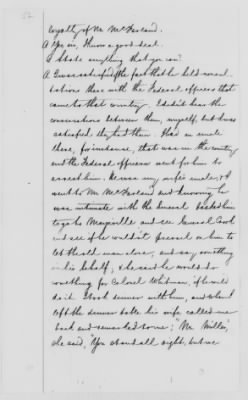 loyalty of Mr. McFarland.
A Yes sir, I know a good deal.
Q State anything that you can?
A I was satisfied of the fact that he held consul-
tations there with the Federal officers that
came to that country. I didn't hear the
conversations between them, myself, but I was
satisfied they had them. I had an uncle
there, for instance, that was in the country
and the Federal officers went for him to
arrest him; he was my wife's uncle; & I
went to Mr. McFarland and knowing he
was intimate with the General I asked him
to go to Maryville and see General
and see if he couldn't prevail on him to
let the old man alone, and say something
in his behalf, & he said he would do
something for Colonel if he could
do it. I took dinner with him, and when I
left the dinner table his wife called me
back and remarked to me; "Mr. Millar,"
she said, "You stand all right, but we